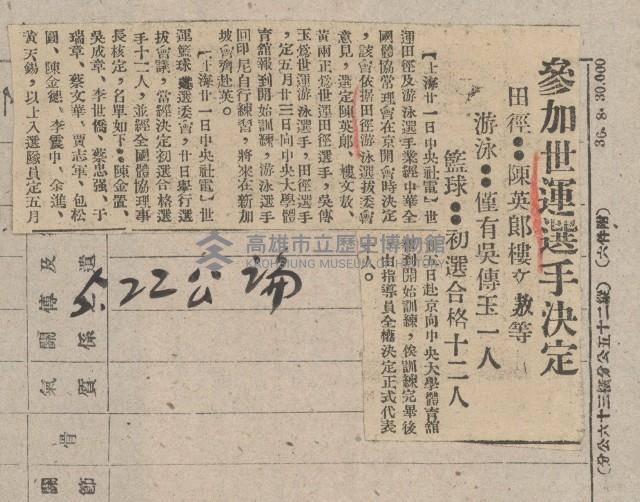 參加世運選手決定
田徑：陳英郎樓文敖等
游泳：僅有吳傳玉一人
籃球：初選合格十二人
【上海廿一日中央社電】世
運田徑及游泳選手業經中華全
國體協常理會在京開會時決定
，該會依據田徑游泳選拔委會
意見，選定陳英郎、樓文敖、
黃兩正為世運田徑選手，吳傳
玉為世運游泳選手，田徑選手
，定五月廿三日向中央大學體
育舘報到開始訓練，游泳選手
回印尼自行練習，將來在新加
坡會齊赴英。
【上海廿一日中央社電】世
運籃球選委會，廿日舉行選
拔會議，當經決定初選合格選
手十二人，並經全國體協理事
長核定，名單如下：陳金置、
吳成章、李世僑、蔡忠强、于
瑞章、蔡文華、賈志軍、包松
圓、陳金德、李震中、余進、
黃天錫，以上入選隊員定五月
五日赴京向中央大學體育舘
報到開始訓練，俟訓練完畢後
由指導員全權決定正式代表
人。
5.22公論
高雄市立歷史博物館
KAOHSIUNG MUSEUM OF HISTORY
36. 8. 30,000
(六件附)
(分公六十三橫分公五十二縱)
遺
傳及
關係
氣質
骨
關節